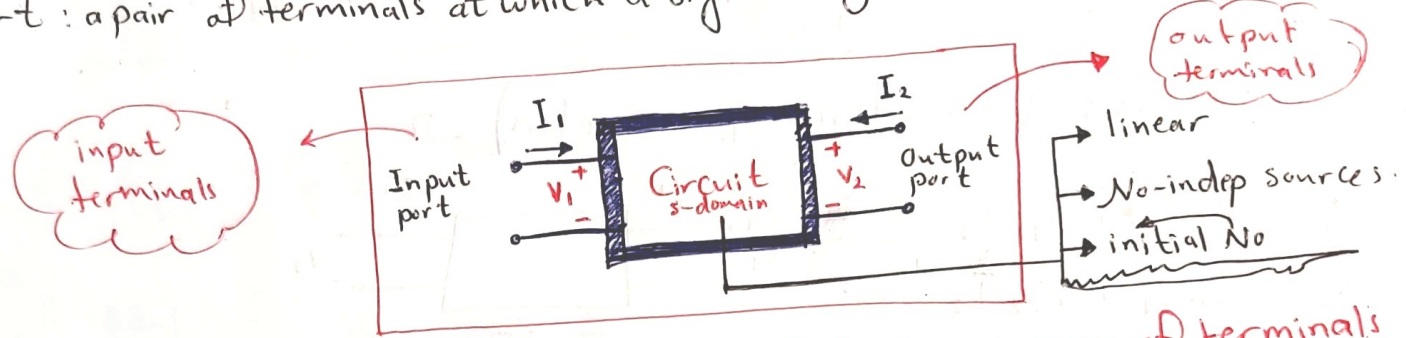 -t : a pair of terminals at which a
output
terminals
I₁
I₂
linear
input
terminals
Input
port
V₁
+
-
Circuit
s-domain
+
V₂
-
Output
port
No-indep sources.
initial No
of terminals